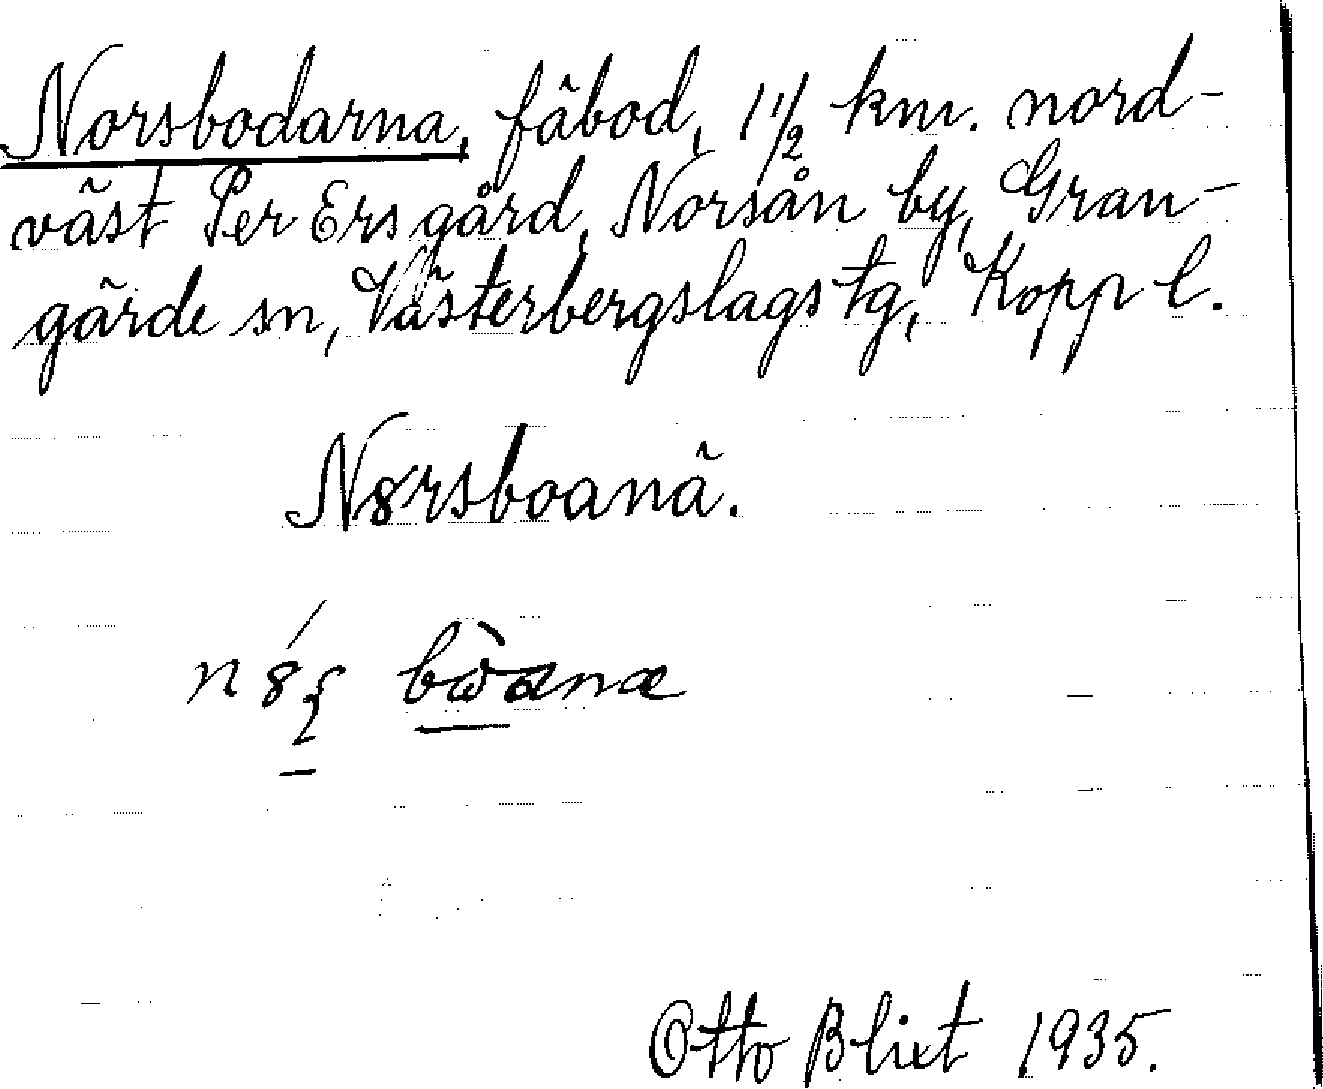 Norsbodarna, fäbod, 1 1/2 km. nord-
väst Per Ers gård, Norsån by, Gran-
gärde sn, Västerbergslags tg, Kopp l.
N8rsboanä.
Otto Blixt 1935.